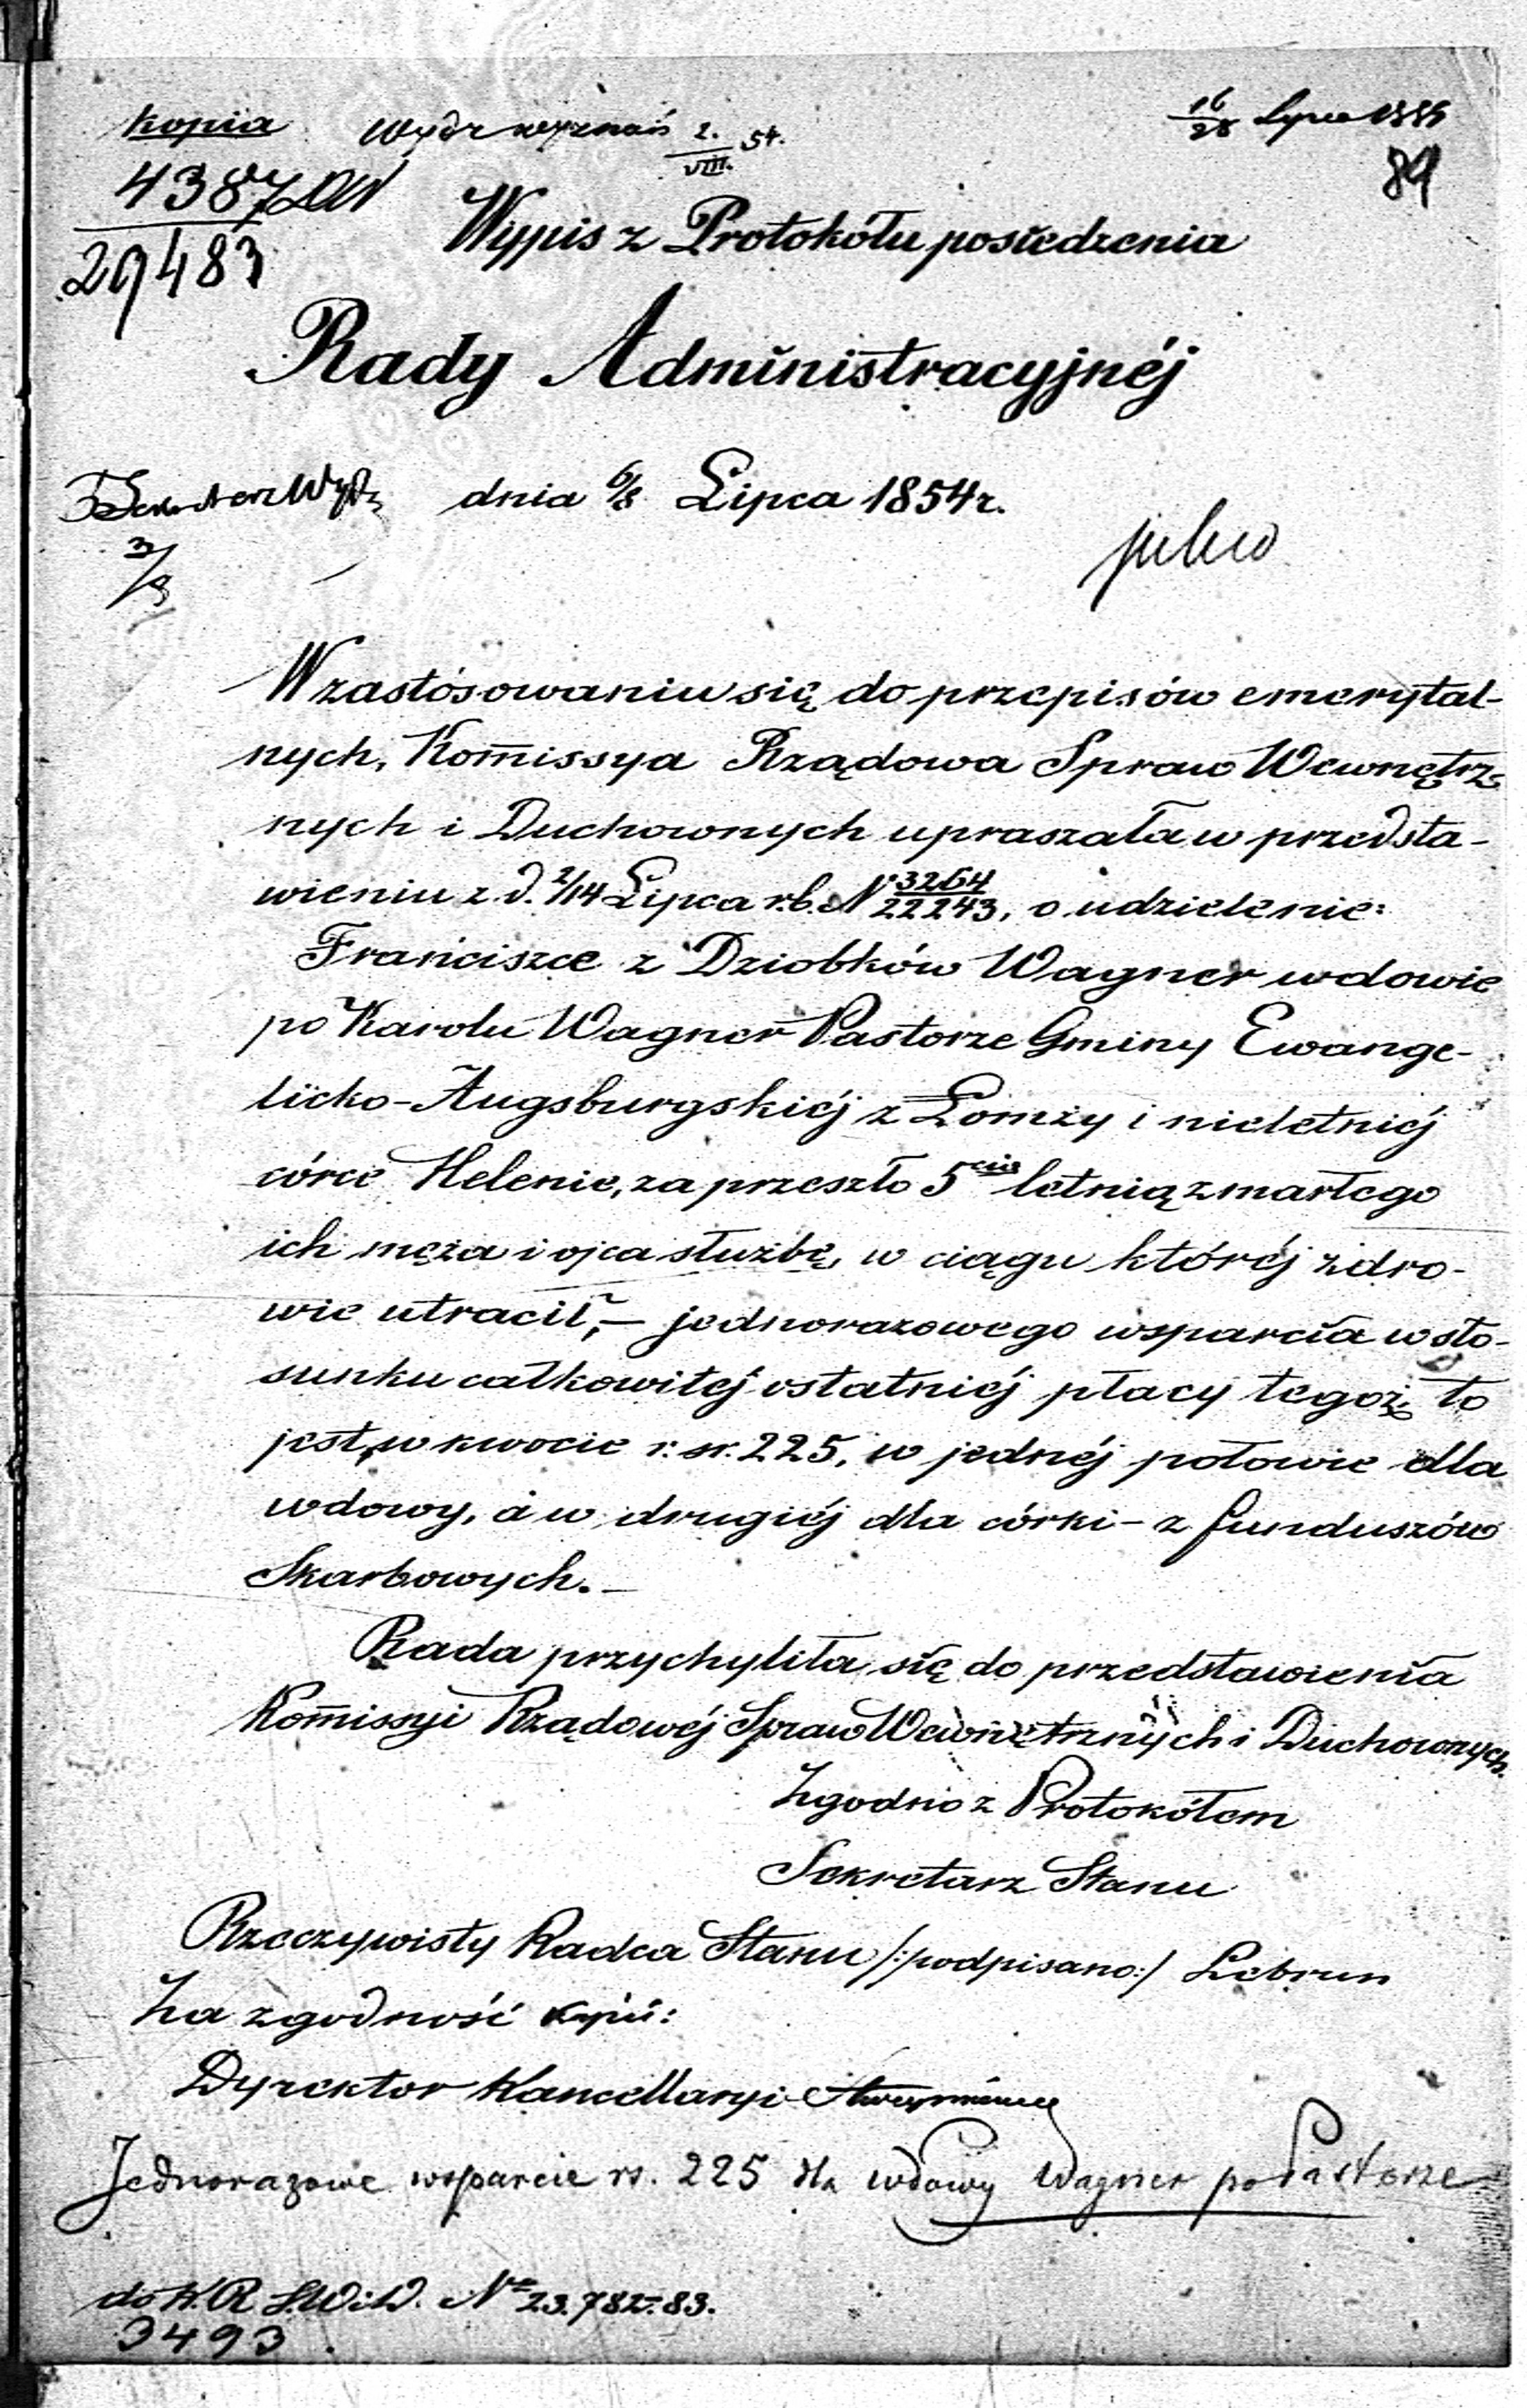 Kopia
Wydz wyznań 2./VIII. 54.
16/28 Lipca 1854
89
4387
29483
Wypis z Protokółu posiedzenia
Rady Administracyjnéj
dnia 6/8 Lipca 1854 r.
3/8
W zastósowaniu się do przepisów emerytal-
nych, Kom̄issya Rządowa Spraw Wewnętrz-
nych i Duchownych upraszała w przedsta-
wieniu z d. 2/14 Lipca r.b. № 3264/22243, o udzielenie:
Franciszce z Dziobków Wagner wdowie
po Karolu Wagner Pastorze Gminy Ewange-
licko-Augsburgskiéj z Łomży i nieletniéj
córce Helenie, za przeszło 5cio letnią zmarłego
ich męża i ojca służbę, w ciągu któréj zdro-
wie utracił, – jednorazowego wsparcia w sto-
sunku całkowitéj ostatniéj płacy tegoż, to
jest, w kwocie r. sr. 225, w jednéj połowie dla
wdowy, a w drugiéj dla córki – z funduszów
Skarbowych. –
Rada przychyliła się do przedstawienia
Kom̄issyi Rządowéj Spraw Wewnętrznych i Duchownych.
Zgodno z Protokółem
Sekretarz Stanu
Rzeczywisty Radca Stanu /:podpisano:/ Lebrun
Za zgodność kopii:
Dyrektor Kancellaryi
Jednorazowe wsparcie rs. 225 dla wdowy Wagner po Pastorze
do K. R. S. W. i D. № 23.782-83.
3493.